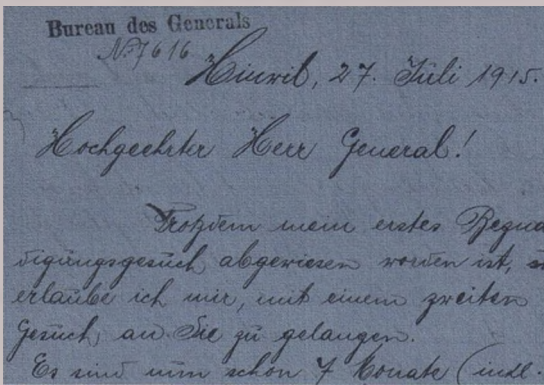 Bureau des Generals
No. 7616
Hinwil, 27. Juli 1915.
Hochgeehrter Herr General!
Trotzdem mein erstes Begna
digungsgesuch abgewiesen worden ist, so
erlaube ich mir, mit einem zweiten
Gesuch, an Sie zu gelangen.
Es sind nun schon 7 Monate (inkl.